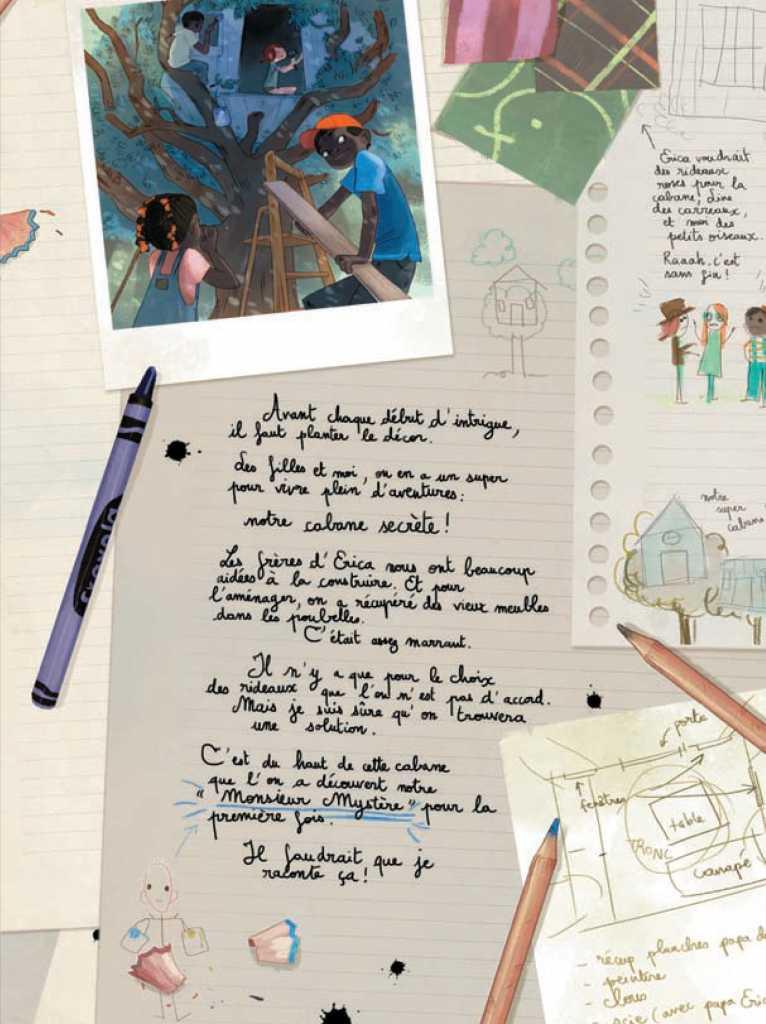 Erica voudrait
des rideaux
roses pour la
cabane, Line
des carreaux,
et moi des
petits oiseaux.
Raaah, c'est
sans fin !
Avant chaque début d'intrigue,
il faut planter le décor.
Les filles et moi, on en a un super
pour vivre plein d'aventures :
notre cabane secrète !
Les frères d'Erica nous ont beaucoup
aidées à la construire. Et pour
l'aménager, on a récupéré des vieux meubles
dans les poubelles.
C'était assez marrant.
Il n'y a que pour le choix
des rideaux que l'on n'est pas d'accord.
Mais je suis sûre qu'on trouvera
une solution.
C'est du haut de cette cabane
que l'on a découvert notre
"Monsieur Mystère" pour la
première fois.
Il faudrait que je
raconte ça !
crayola
notre
super
cabane
porte
fenêtres
table
TRONC
canapé
- récup planches papa
- peinture
- clous
- scie (avec papa Eric